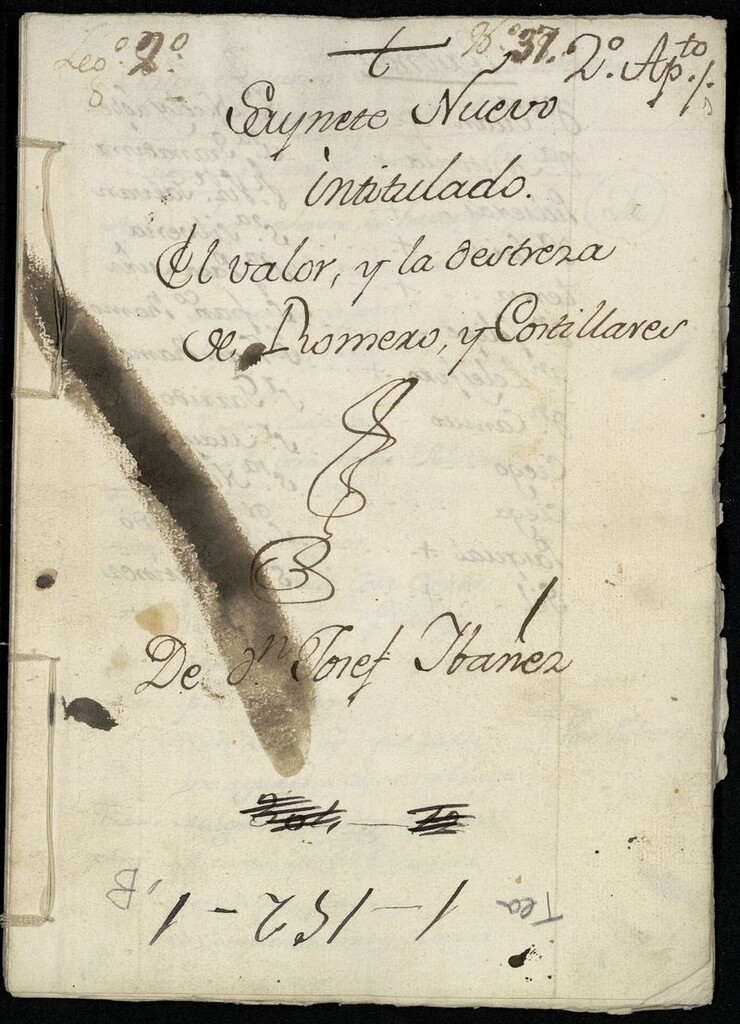 Leg.º 2.º
N.º 37. 2.º Ap.to
Saynete Nuevo
intitulado.
El valor, y la destreza
de Romero, y Costillares
De dn Josef Ibáñez
Tea 1-152-1, B